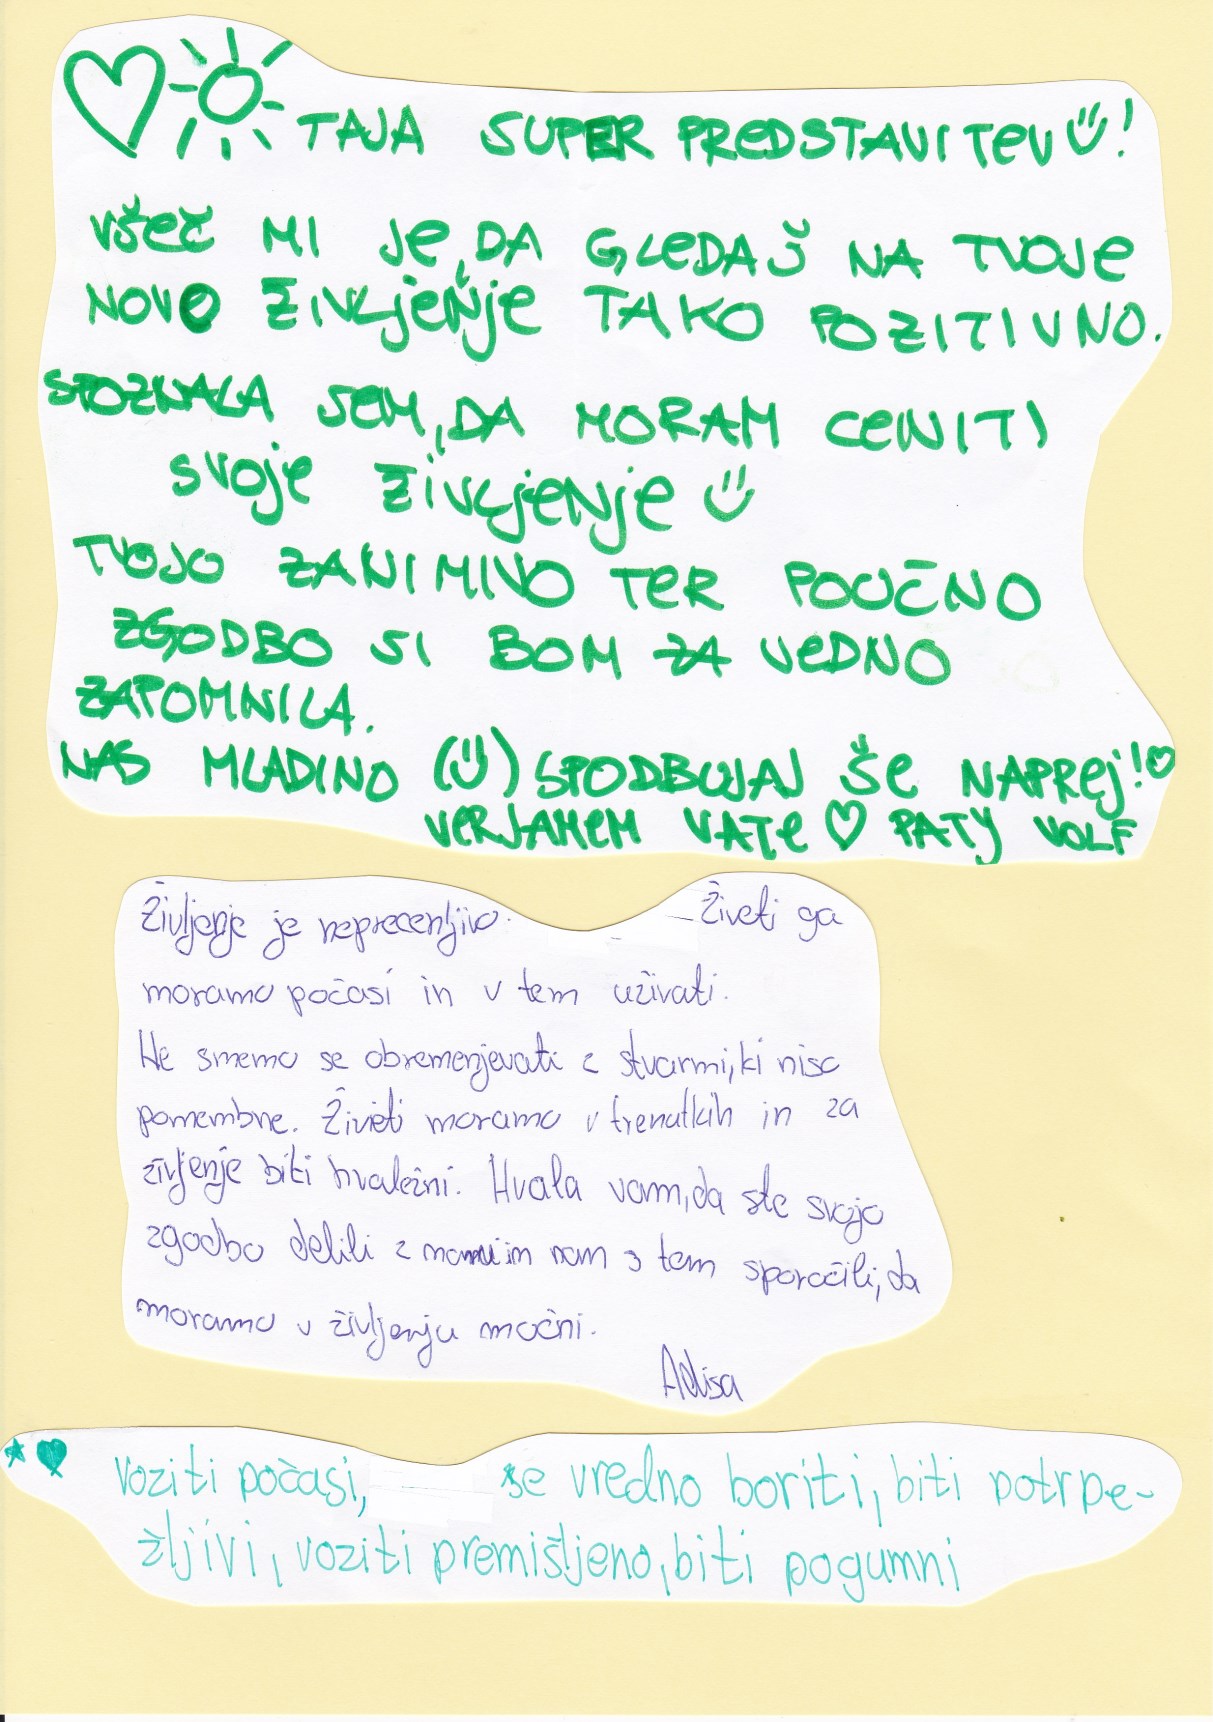 TAJA SUPER PREDSTAVITEV!
VŠEČ MI JE, DA GLEDAŠ NA TVOJE
NOVO ŽIVLJENJE TAKO POZITIVNO.
SPOZNALA SEM, DA MORAM CENITI
SVOJE ŽIVLJENJE
TVOJO ZANIMIVO TER POUČNO
ZGODBO SI BOM ZA VEDNO
ZAPOMNILA.
NAS MLADINO () SPODBUJAJ ŠE NAPREJ!
VERJAMEM VATE PATY VOLF
Življenje je neprecenljivo. Živeti ga
moramo počasi in v tem uživati.
Ne smemo se obremenjevati z stvarmi, ki niso
pomembne. Živeti moramo v trenutkih in za
življenje biti hvaležni. Hvala vam, da ste svojo
zgodbo delili z nami in nam s tem sporočili, da
moramo v življenju močni.
Adisa
voziti počasi, se vredno boriti, biti potrpe-
žljivi, voziti premišljeno, biti pogumni